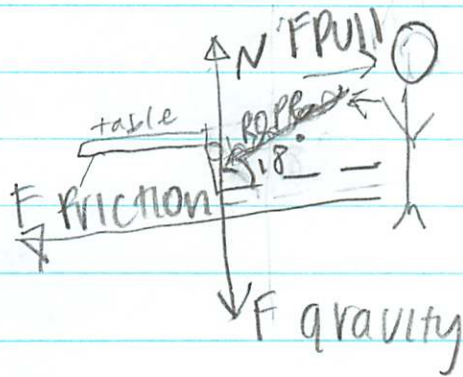 N FPUll
table
18°
F FRICTION
F gravity